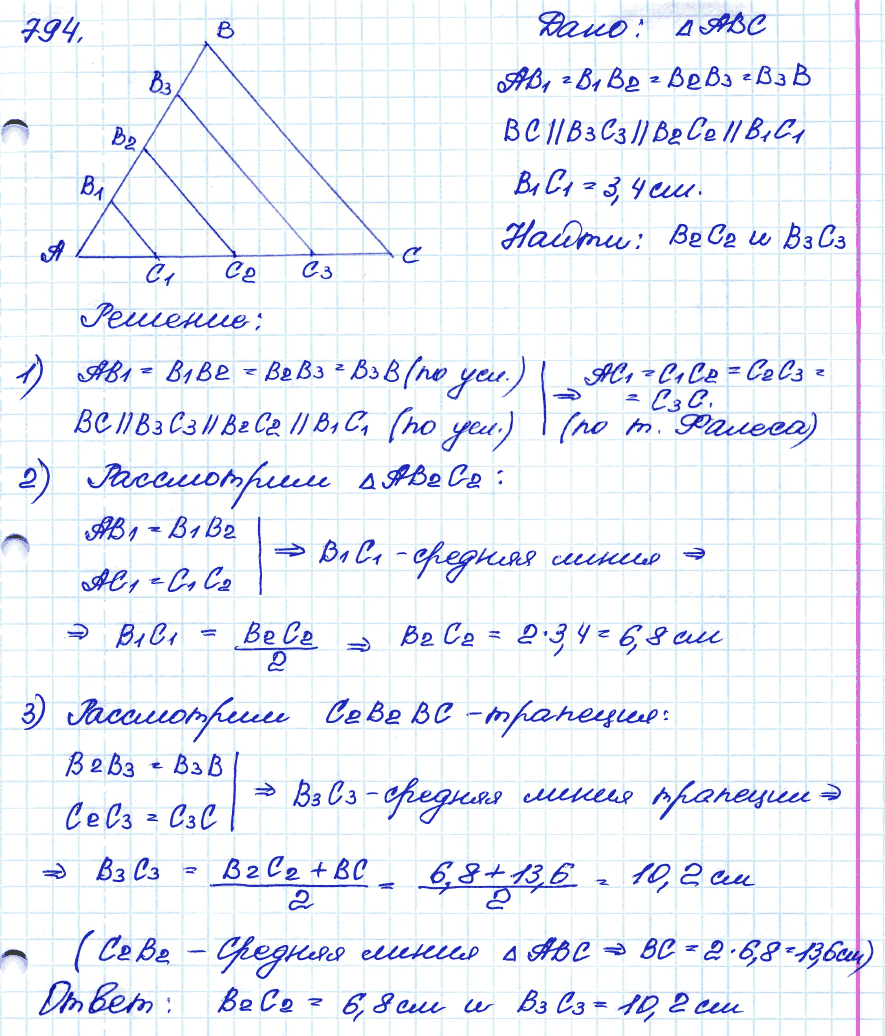 794.
Дано: △ABC
AB₁ = B₁B₂ = B₂B₃ = B₃B
BC || B₃C₃ || B₂C₂ || B₁C₁
B₁C₁ = 3,4 см.
Найти: B₂C₂ и B₃C₃
B
B₃
B₂
B₁
A
C₁
C₂
C₃
C
Решение:
1) AB₁ = B₁B₂ = B₂B₃ = B₃B (по усл.) | ⇒ AC₁ = C₁C₂ = C₂C₃ =
= C₃C.
BC || B₃C₃ || B₂C₂ || B₁C₁ (по усл.) | (по т. Фалеса)
2) Рассмотрим △AB₂C₂:
AB₁ = B₁B₂
AC₁ = C₁C₂ | ⇒ B₁C₁ - средняя линия ⇒
⇒ B₁C₁ = B₂C₂/2 ⇒ B₂C₂ = 2·3,4 = 6,8 см
3) Рассмотрим C₂B₂BC - трапеция:
B₂B₃ = B₃B
C₂C₃ = C₃C | ⇒ B₃C₃ - средняя линия трапеции ⇒
⇒ B₃C₃ = (B₂C₂ + BC)/2 = (6,8 + 13,6)/2 = 10,2 см
(C₂B₂ - средняя линия △ABC ⇒ BC = 2·6,8 = 13,6 см)
Ответ: B₂C₂ = 6,8 см и B₃C₃ = 10,2 см